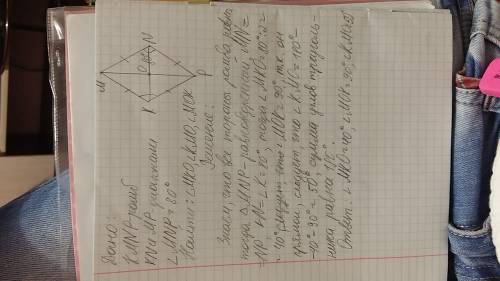 Дано:
KMNP-ромб
KN и MP диагонали
∠MNP = 80°
Найти: ∠MKO, ∠KMO, ∠MOK
Решение:
M
N
K
P
O
80°
Знаем, что все стороны ромба равн
тогда △MNP- равнобедренный, MN =
= NP. ∠N = ∠K = 80°, тогда ∠MKO = 80°:2 =
= 40° следует, что ∠MOK = 90°, т.к. он
прямой, следует, что ∠KMO = 180° -
-40° - 90° = 50°, сумма углов треуголь-
ника равна 180°
Ответ: ∠MKO = 40°, ∠MOK = 90°, ∠KMO = 50°